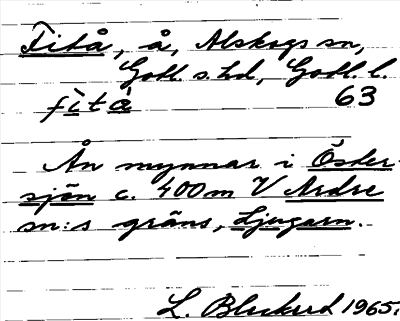 Fitå, å, Alskogs sn,
Gotl. s. hd, Gotl. l.
fìtà 63
Ån mynnar i Öster-
sjön c. 400 m V Ardre
sn:s gräns, Ljugarn.
L. 1965.